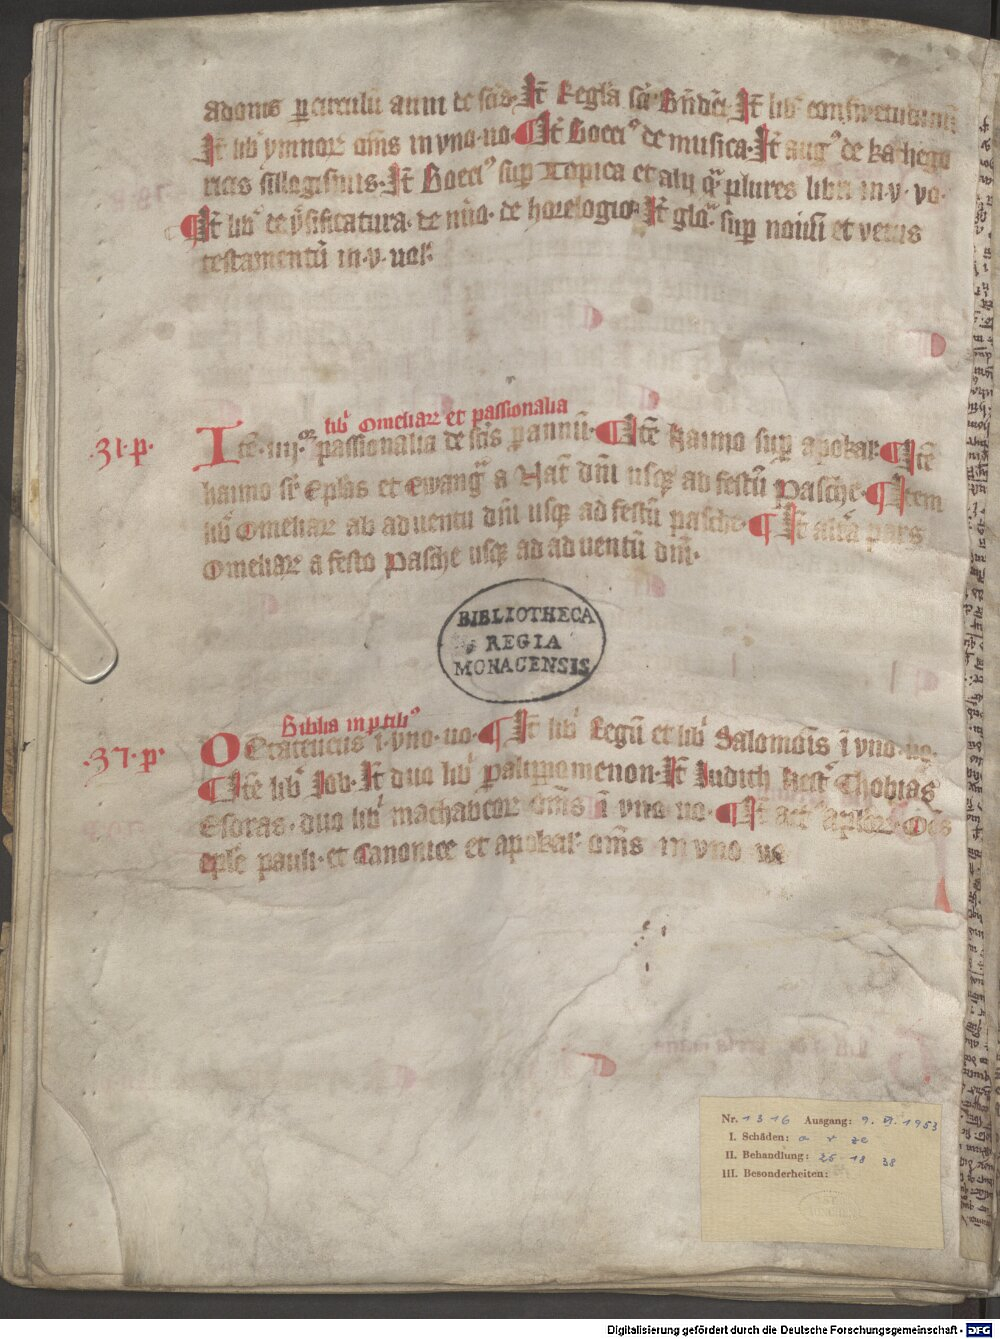 adonis p circulū anni de scīs· It̄ Regla scī Bn̄dcī· It̄ lib' consuetudinū
It̄ lib' ymnoꝝ om̄s in vno· uo· ¶ It̄ Boeci⁹ de musica· It̄ aug⁹ de kathego
ricis sillogismis· It̄ Boeci⁹ sup Topica et alij qͣ plures libri in· v· vo·
¶ It̄ lib' de v̄sificatura· de nūo· de horelogio It̄ glo· sup noui et veteris
testamentū in· v· uol'
lib' Omeliaꝝ et passionalia
·31· p· Itē· iiij·or passionalia de scīs p annū· ¶ Itē haimo sup apokal· ¶ Itē
haimo sr̄ Eplas et Ewanḡ a Nat̄ dn̄i usqꝫ ad festū Pasche· ¶ Item
lib' Omeliaꝝ ab aduentu dn̄i usqꝫ ad festū pasche· ¶ It̄ altͣa pars
Omeliaꝝ a festo Pasche usqꝫ ad aduentū dn̄i·
BIBLIOTHECA
REGIA
MONACENSIS
Biblia in ptib⁹
·37· p· Octateucus ī· vno· uo· ¶ It̄ lib' Regū et lib' Salomoīs ī vno· uo·
¶ Itē lib' Job· It̄ duo lib' palipomenon· It̄ Judich hest' Thobias
Esdras· duo lib' machabeoꝝ om̄s ī vno· uo· ¶ It̄ act' aplōꝝ
eple pauli· et Canonice et apokal· om̄s in vno uo
Nr. 1316 Ausgang: 9. VI. 1953
I. Schäden: a r ze
II. Behandlung: 25 18 38
III. Besonderheiten:
Digitalisierung gefördert durch die Deutsche Forschungsgemeinschaft - DFG